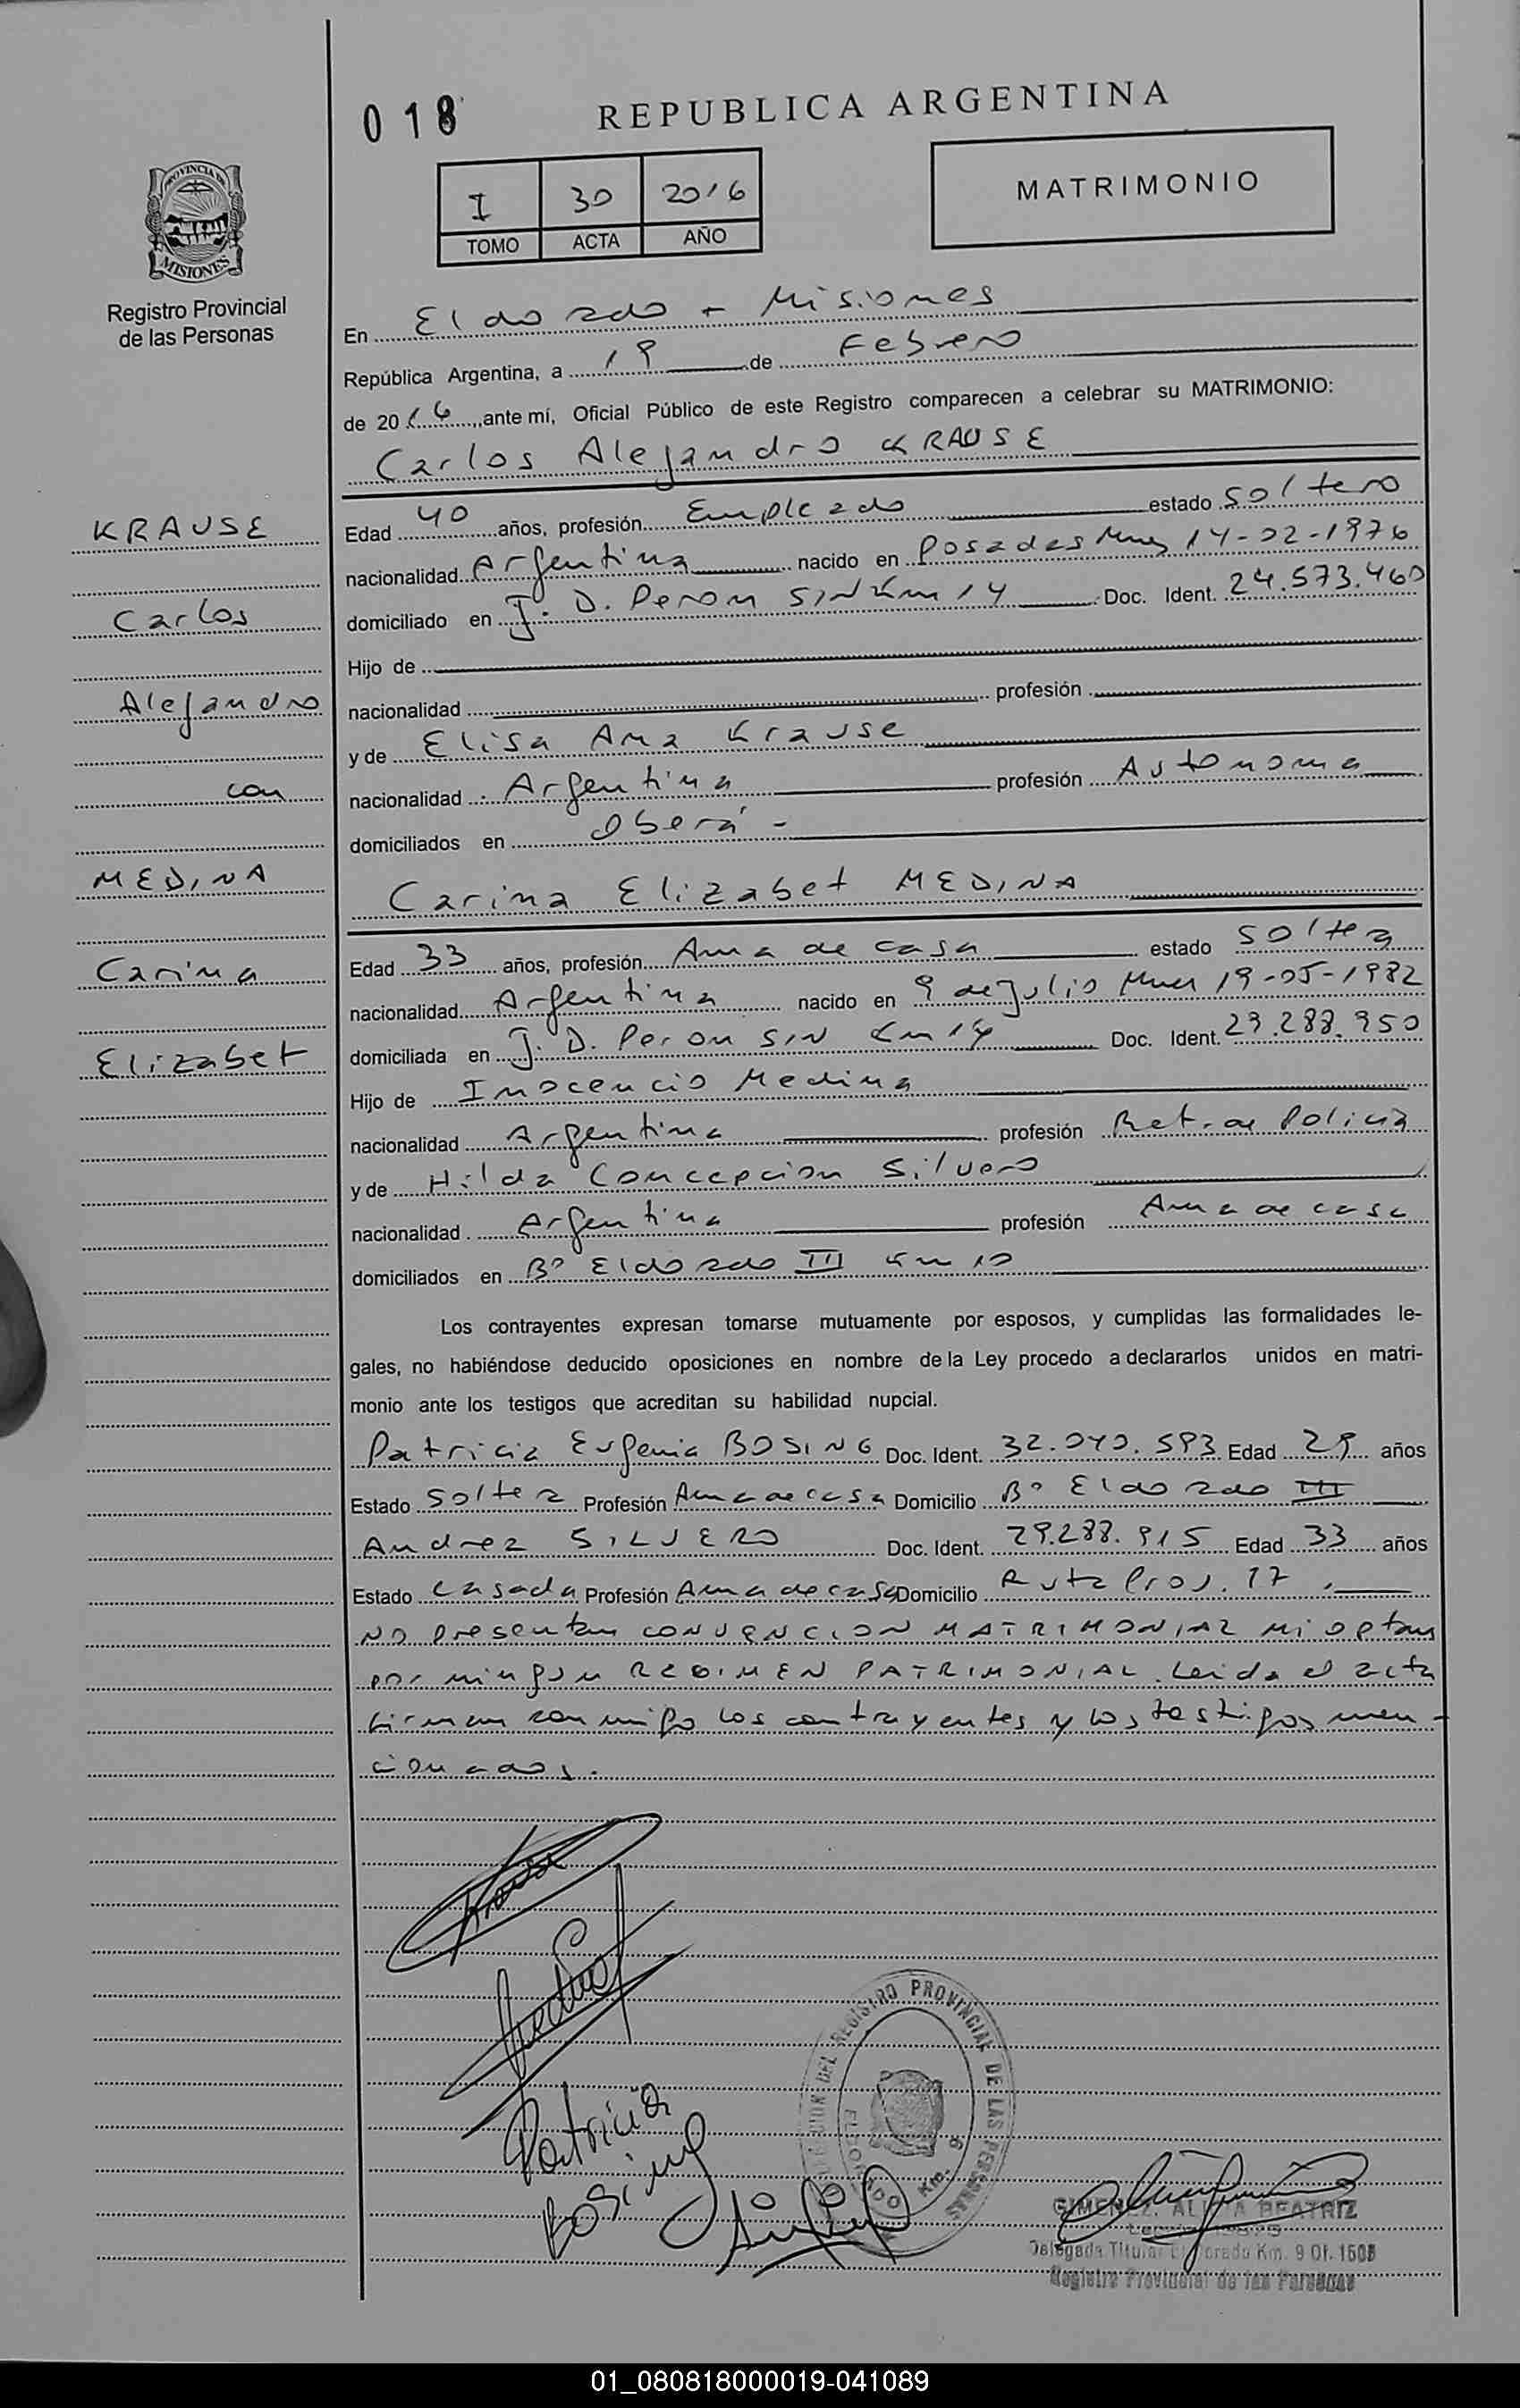 018
REPUBLICA ARGENTINA
PROVINCIA DE
MISIONES
Registro Provincial
de las Personas
I 30 2016
TOMO ACTA AÑO
MATRIMONIO
En Eldorado - Misiones
República Argentina, a 19 de Febrero
de 2016, ante mí, Oficial Público de este Registro comparecen a celebrar su MATRIMONIO:
Carlos Alejandro KRAUSE
KRAUSE
Carlos
Alejandro
con
MEDINA
Carina
Elizabet
Edad 40 años, profesión Empleado estado soltero
nacionalidad Argentina nacido en Posadas Mnes 14-02-1976
domiciliado en J. D. Peron S/N Km 14 Doc. Ident. 24.573.460
Hijo de
nacionalidad profesión
y de Elisa Ana Krause
nacionalidad Argentina profesión Autonoma
domiciliados en Oberá -
Carina Elizabet MEDINA
Edad 33 años, profesión Ama de casa estado soltera
nacionalidad Argentina nacido en 9 de Julio Mnes 19-05-1982
domiciliada en J. D. Peron S/N Km 14 Doc. Ident. 29.288.950
Hijo de Inocencio Medina
nacionalidad Argentina profesión Ret. de Policia
y de Hilda Concepcion Silvero
nacionalidad Argentina profesión Ama de casa
domiciliados en Bº Eldorado III Km 10
Los contrayentes expresan tomarse mutuamente por esposos, y cumplidas las formalidades le-
gales, no habiéndose deducido oposiciones en nombre de la Ley procedo a declararlos unidos en matri-
monio ante los testigos que acreditan su habilidad nupcial.
Patricia Eugenia BOSING Doc. Ident. 32.040.593 Edad 29 años
Estado soltera Profesión Ama de casa Domicilio Bº Eldorado III
Andrea SILVERO Doc. Ident. 29.288.915 Edad 33 años
Estado casada Profesión Ama de casa Domicilio Ruta Prov. 17
NO presentan CONVENCION MATRIMONIAL ni optan
por ningun REGIMEN PATRIMONIAL. Leida el acta
firman conmigo los contrayentes y los testigos men-
cionados.
Patricia
Bosing
DEL REGISTRO PROVINCIAL DE LAS PERSONAS
ELDORADO Km. 9
GIMENEZ, ALICIA BEATRIZ
Delegada Titular Eldorado Km. 9 Of. 1505
Registro Provincial de las Personas
01_080818000019-041089